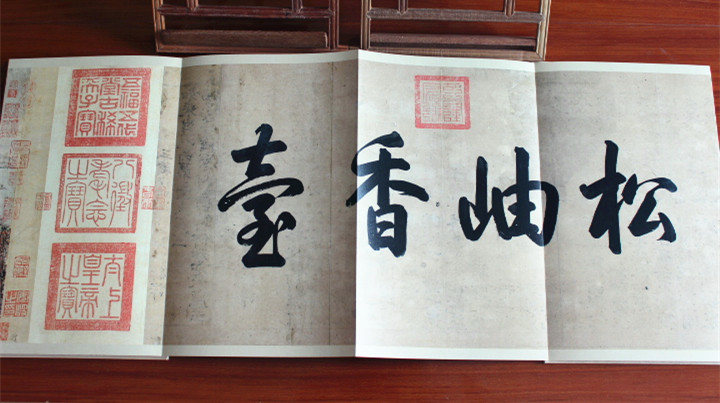 松岫香臺
五福五代堂古稀天子寶
八徵耄念之寶
太上皇帝之寶